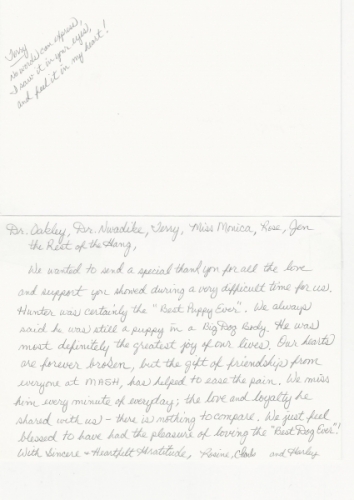 Terry
No words can express,
I saw it in your eyes,
and feel it in my heart!
Dr. Oakley, Dr. Nwadike, Terry, Miss Monica, Rose, Jen
the Rest of the Gang,
We wanted to send a special thank you for all the love
and support you showed during a very difficult time for us.
Hunter was certainly the "Best Puppy Ever". We always
said he was still a puppy in a Big Dog Body. He was
most definitely the greatest joy of our lives. Our hearts
are forever broken, but the gift of friendship from
everyone at MASH, has helped to ease the pain. We miss
him every minute of everyday; the love and loyalty he
shared with us - there is nothing to compare. We just feel
blessed to have had the pleasure of loving the "Best Dog Ever"!
With Sincere & Heartfelt Gratitude, and Harley